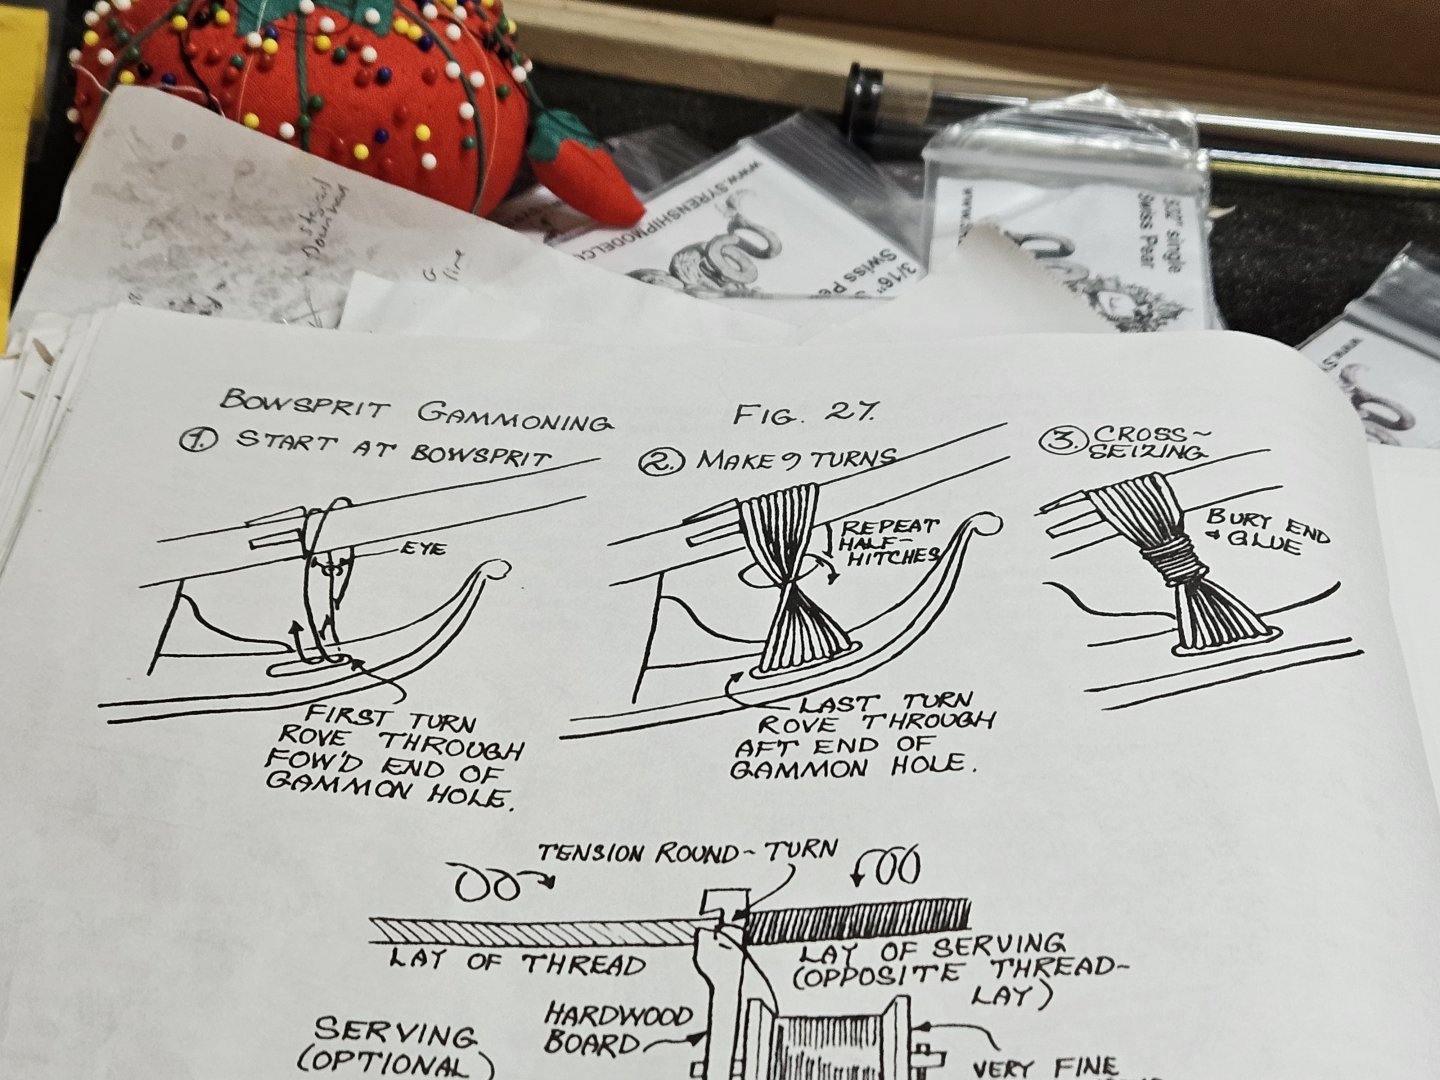 www.SYRENSHIPMODELC
3/16"
Swiss Pe
5/32" single
Swiss Pear
line
BOWSPRIT GAMMONING
FIG. 27.
1. START AT BOWSPRIT
EYE
FIRST TURN
ROVE THROUGH
FOW'D END OF
GAMMON HOLE.
2. MAKE 9 TURNS
REPEAT
HALF-
HITCHES
LAST TURN
ROVE THROUGH
AFT END OF
GAMMON HOLE.
3. CROSS~
SEIZING
BURY END
& GLUE
TENSION ROUND-TURN
LAY OF THREAD
LAY OF SERVING
(OPPOSITE THREAD-
LAY)
HARDWOOD
BOARD
SERVING
(OPTIONAL)
VERY FINE